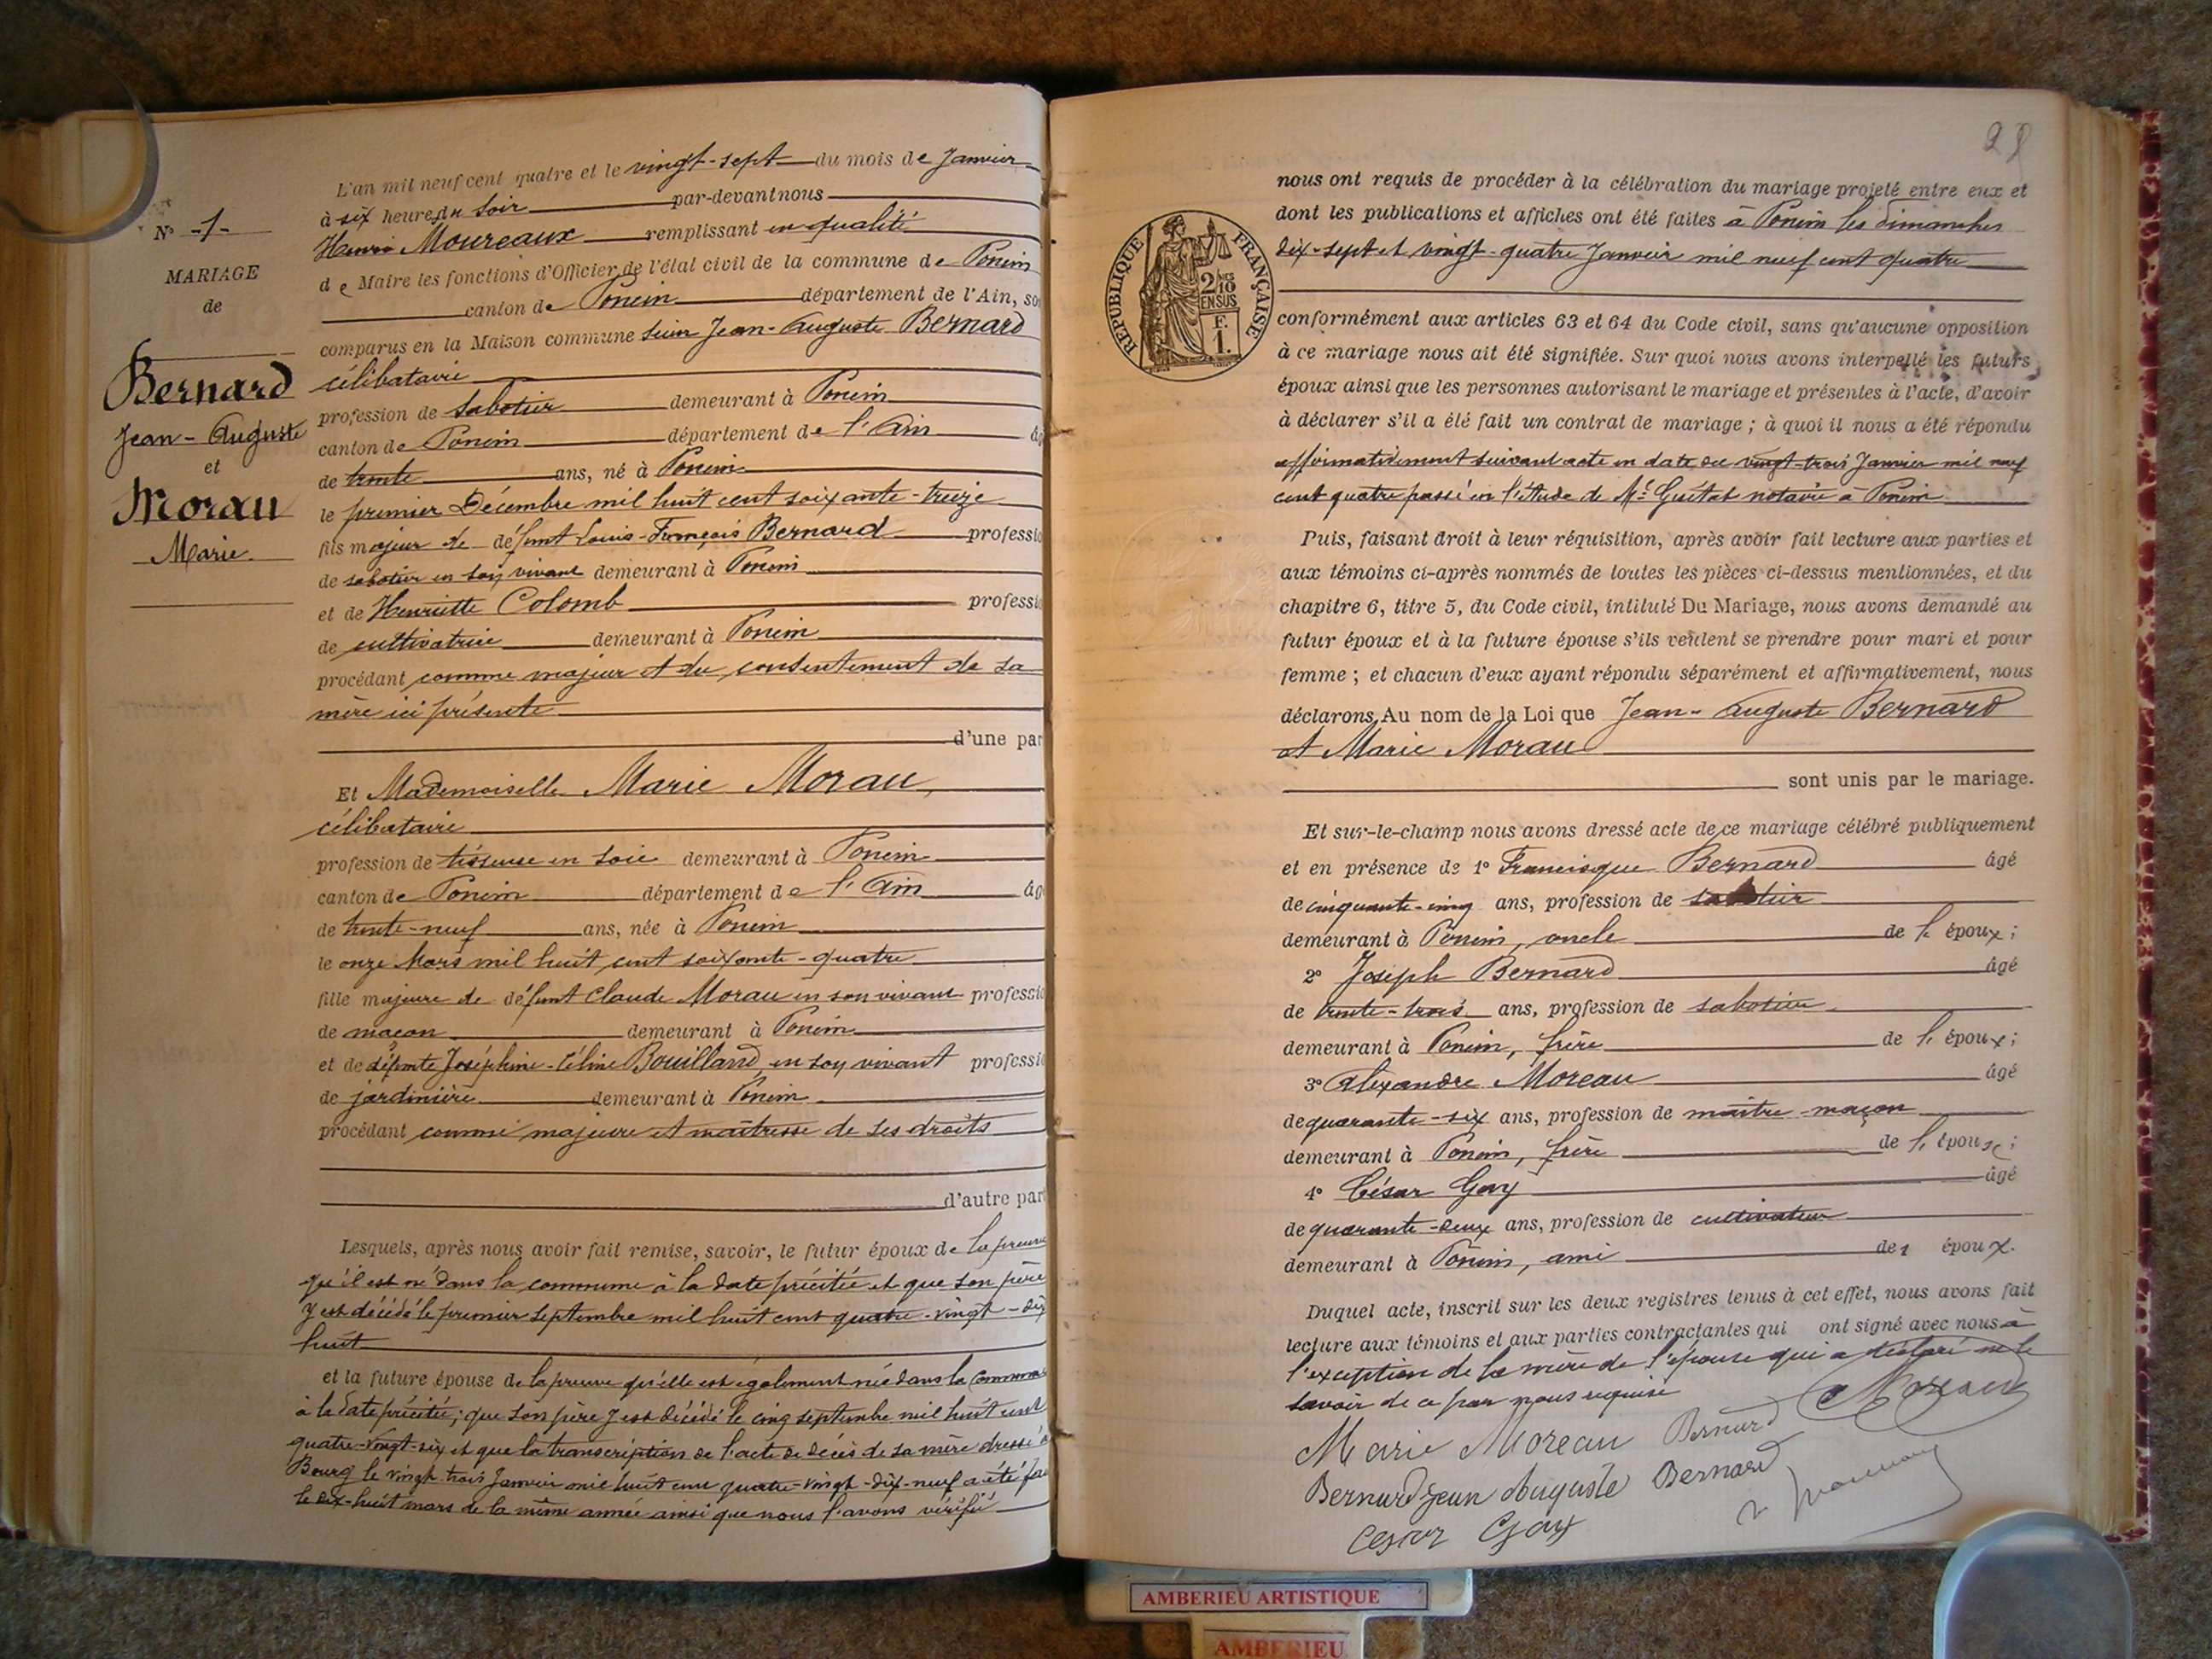 N° -1-
MARIAGE
de
Bernard
Jean-Auguste
et
Morau
Marie
L'an mil neuf cent quatre et le vingt-sept du mois de Janvier
à six heures du soir par-devant nous
Henri Moureaux remplissant en qualité
de Maire les fonctions d'Officier de l'état civil de la commune de Poncin
canton de Poncin département de l'Ain, so
comparus en la Maison commune sieur Jean-Auguste Bernard
célibataire
profession de sabotier demeurant à Poncin
canton de Poncin département de l'Ain âg
de trente ans, né à Poncin
le premier Décembre mil huit cent soixante-treize
fils majeur de défunt Louis-François Bernard professio
de sabotier en son vivant demeurant à Poncin
et de Henriette Colomb professio
de cultivatrice demeurant à Poncin
procédant comme majeur et du consentement de sa
mère ici présente
d'une par
Et Mademoiselle Marie Morau,
célibataire
profession de tisseuse en soie demeurant à Poncin
canton de Poncin département de l'Ain âg
de trente-neuf ans, née à Poncin
le onze Mars mil huit cent soixante-quatre
fille majeure de défunt Claude Morau en son vivant professio
de maçon demeurant à Poncin
et de défunte Joséphine-Céline Bouilland, en son vivant professio
de jardinière demeurant à Poncin
procédant comme majeure et maîtresse de ses droits
d'autre par
Lesquels, après nous avoir fait remise, savoir, le futur époux de la preuve
qu'il est né dans la commune à la date précitée et que son père
y est décédé le premier septembre mil huit cent quatre-vingt-dix
huit
et la future épouse de la preuve qu'elle est également née dans la Commune
à la date précitée; que son père y est décédé le cinq septembre mil huit cent
quatre-vingt-six et que la transcription de l'acte de décès de sa mère dressé à
Bourg le vingt trois Janvier mil huit cent quatre-vingt-dix-neuf a été fai
le dix-huit mars de la même année ainsi que nous l'avons vérifié
28
RÉPUBLIQUE FRANÇAISE
2/10
EN SUS
F.
1.
nous ont requis de procéder à la célébration du mariage projeté entre eux et
dont les publications et affiches ont été faites à Poncin les dimanches
dix-sept et vingt-quatre Janvier mil neuf cent quatre
conformément aux articles 63 et 64 du Code civil, sans qu'aucune opposition
à ce mariage nous ait été signifiée. Sur quoi nous avons interpellé les futurs
époux ainsi que les personnes autorisant le mariage et présentes à l'acte, d'avoir
à déclarer s'il a été fait un contrat de mariage ; à quoi il nous a été répondu
affirmativement suivant acte en date du vingt-trois Janvier mil neuf
cent quatre passé en l'étude de Me Guétat notaire à Poncin
Puis, faisant droit à leur réquisition, après avoir fait lecture aux parties et
aux témoins ci-après nommés de toutes les pièces ci-dessus mentionnées, et du
chapitre 6, titre 5, du Code civil, intitulé Du Mariage, nous avons demandé au
futur époux et à la future épouse s'ils veulent se prendre pour mari et pour
femme ; et chacun d'eux ayant répondu séparément et affirmativement, nous
déclarons Au nom de la Loi que Jean-Auguste Bernard
et Marie Morau
sont unis par le mariage.
Et sur-le-champ nous avons dressé acte de ce mariage célébré publiquement
et en présence de 1° Francisque Bernard âgé
de cinquante-cinq ans, profession de sabotier
demeurant à Poncin, oncle de l'époux ;
2° Joseph Bernard âgé
de trente-trois ans, profession de sabotier
demeurant à Poncin, frère de l'époux ;
3° Alexandre Moreau âgé
de quarante-six ans, profession de maître-maçon
demeurant à Poncin, frère de l'épouse ;
4° César Gay âgé
de quarante-deux ans, profession de cultivateur
demeurant à Poncin, ami des époux.
Duquel acte, inscrit sur les deux registres tenus à cet effet, nous avons fait
lecture aux témoins et aux parties contractantes qui ont signé avec nous à
l'exception de la mère de l'épouse qui a déclaré ne le
savoir de ce par nous requise
A Moreau
Marie Moreau Bernard
Bernard Jean Auguste Bernard
Cesar Gay
AMBERIEU ARTISTIQUE
AMBERIEU